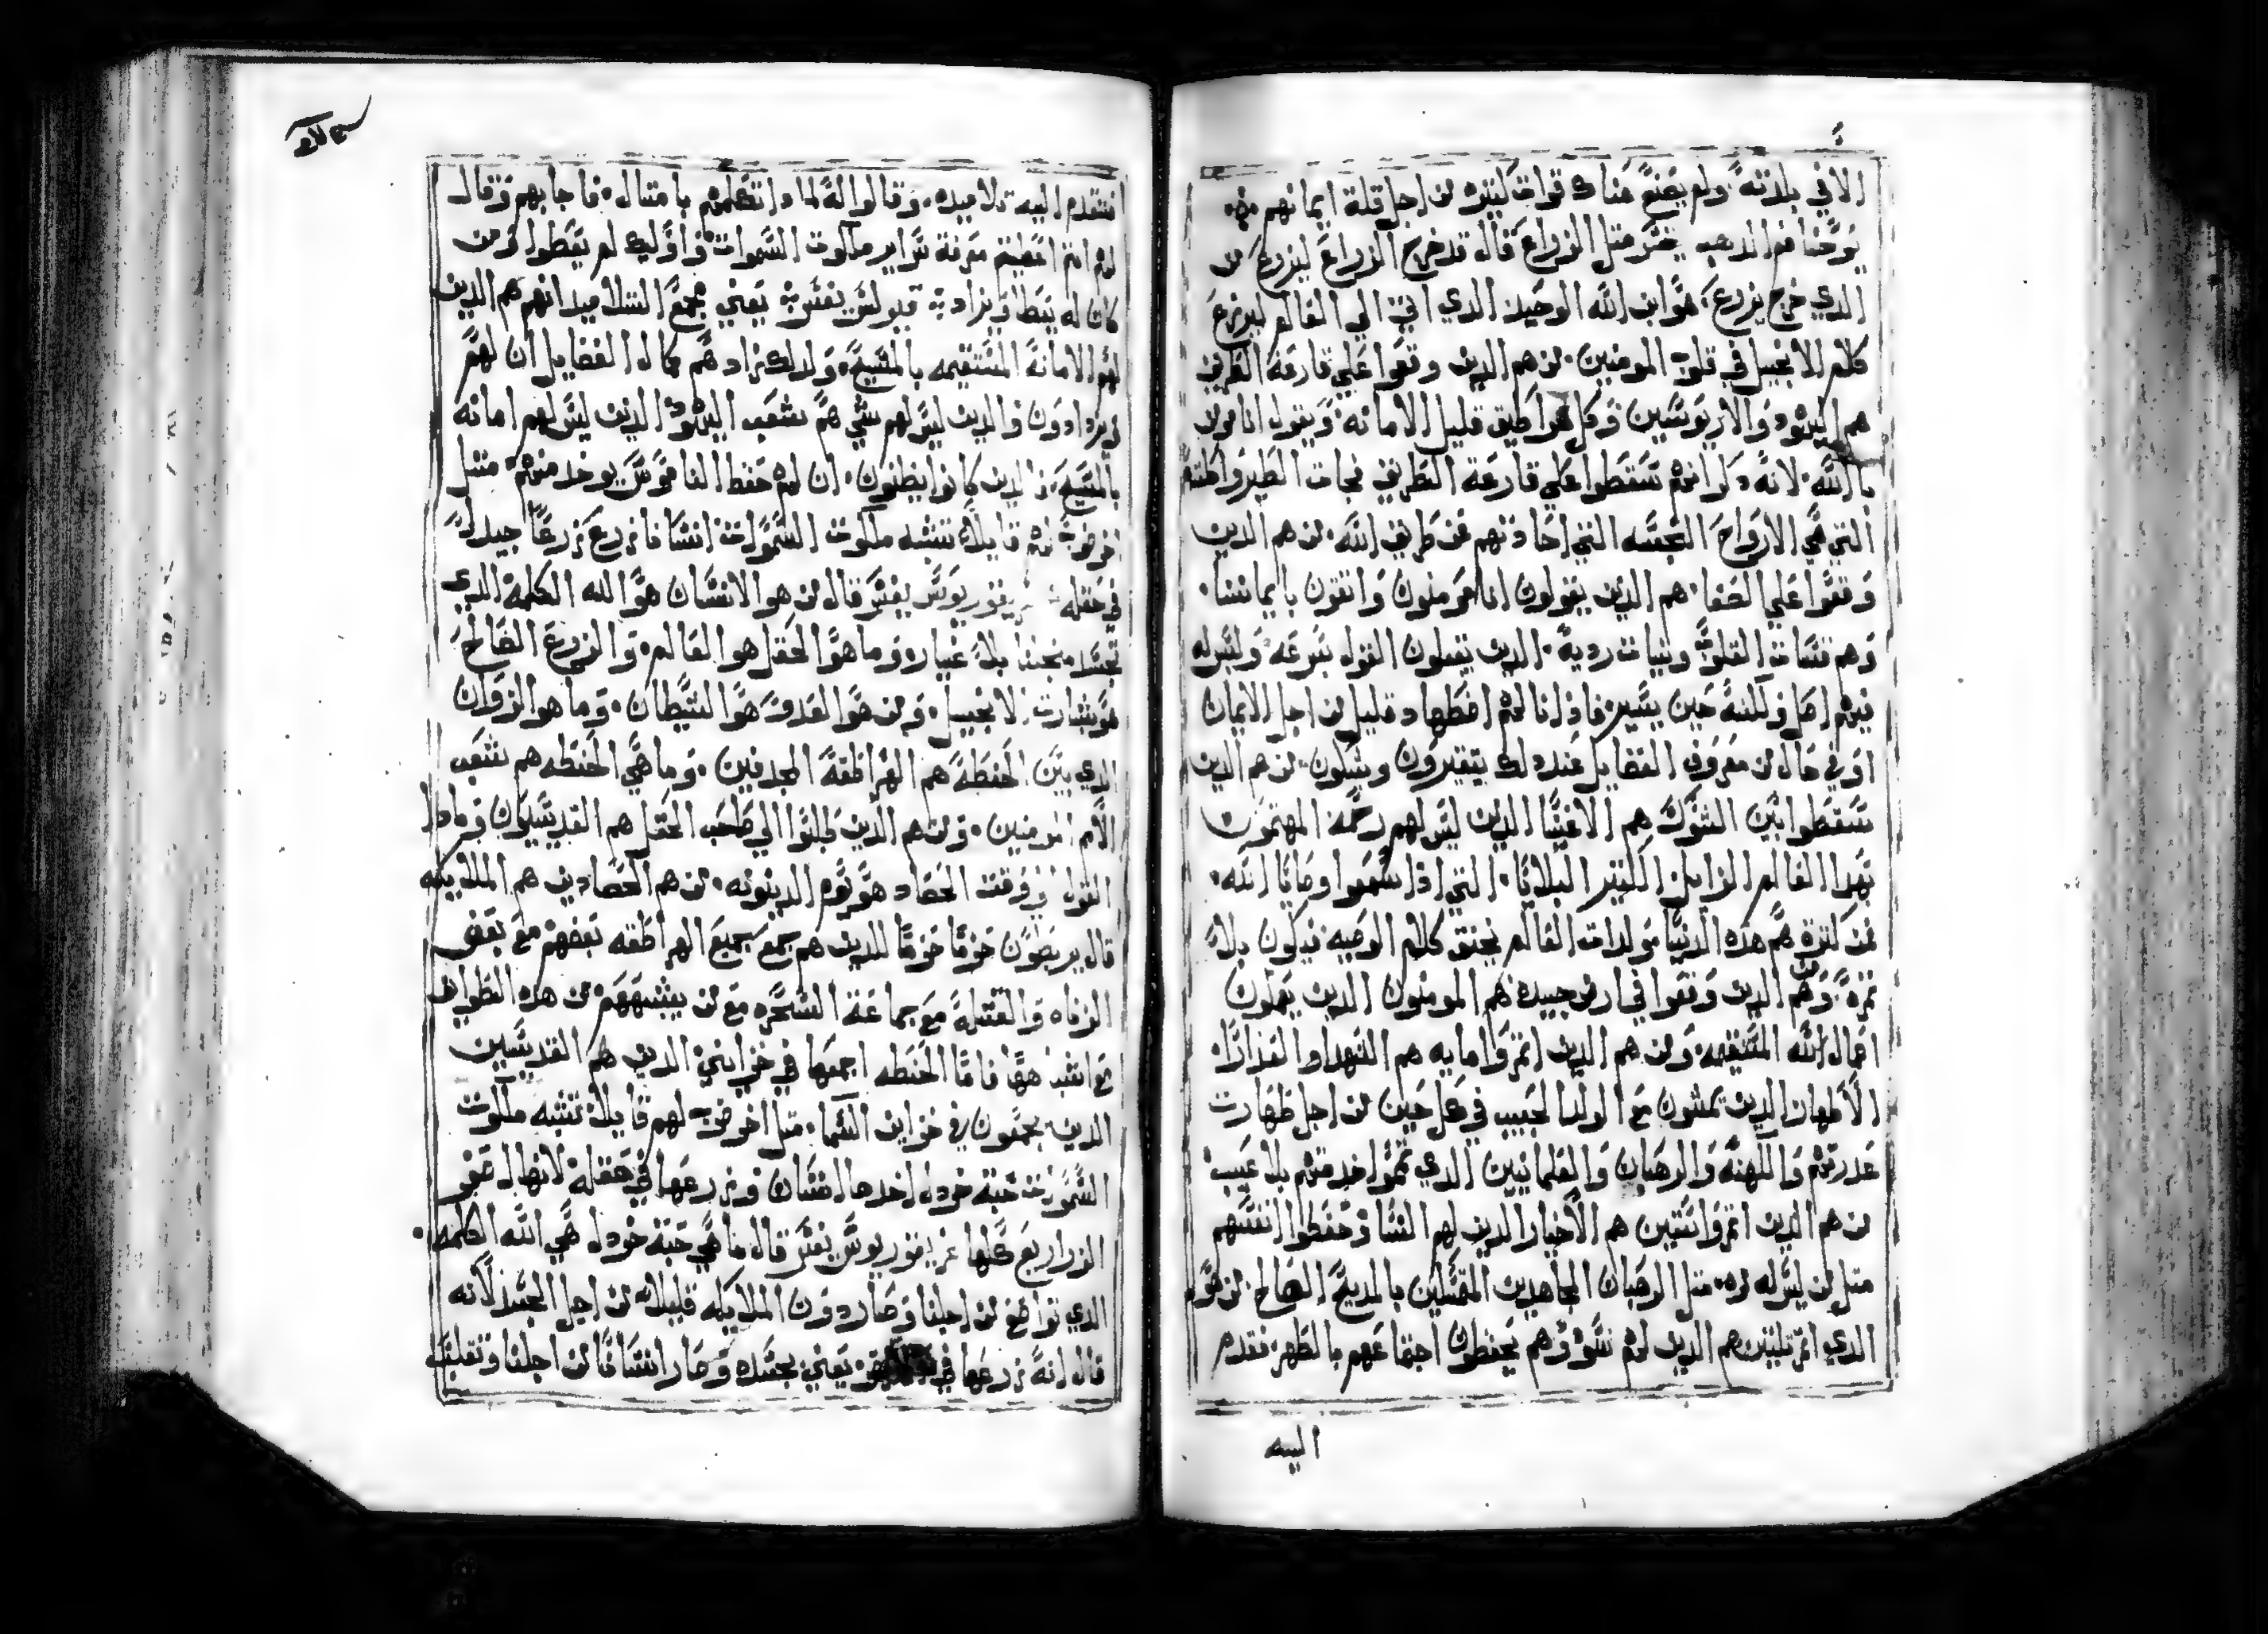 الا في بلدته ولم يصنع هناك قوات كتيره من اجل قلة ايمانهم
يوحنا فم الدهب يفسر متل الزراع قال قد خرج الزراع ليزرع من
الدي خرج يزرع هو ابن الله الوحيد الدي اتى الي العالم ليزرع
كلام الانجيل في قلوب المومنين من هم الدين وقعوا علي قارعة الطريق
هم اليهود والاريوسيين وكل هراطيق قليل الامانه ويقول انا مومن
بالله لانه دكر انهم سقطوا علي قارعة الطريق فجات الطير واكلتهم
التي هي الارواح النجسه التي احادتهم عن طريق الله من هم الدين
وقعوا علي الصفا هم الدين يقولون انا مومنون واتقون بايماننا
وهم قساة القلوب ونيات رديه الدين يقبلون القول بسرعه وليس له
فيهم اصل ولكنه حين يسير فادا نالهم اضطهاد قليل من اجل الايمان
او في حال من معروف الفضايل عند دلك يتغيرون ويشكون من هم الدين
سقطوا بين الشوك هم الاغنيا الدين ليس لهم رحمه المهتمون
بهدا العالم الزايل الكتير البلايا التي ادا سمعوا وصايا الله
فمن كترة هم هده الدنيا ولدات العالم يخنق كلام الوصيه فيكون بلا
تمرة ومن هم الدين وقعوا في ارض جيده هم المومنون الدين يعملون
اعمال الله المستقيمه ومن هم الدين اتمروا مايه هم الشهدا والعدارا
الاطهار الدين يمشون مع الولد الحبيب في كل حين من اجل طهارت
عدرتهم والكهنه والرهبان والعلمانيين الدي تمموا خدمتهم بلا عيب
من هم الدين اتمروا ستين هم الاخيار الدين لهم النسا وحفظوا انفسهم
متل من ليس له مره متل الرهبان المجاهدين المتمسكين بالمديح الصالح من هو
الدي اتمر تلتين هم الدين لهم نسوه وهم يحفظون اجتماعهم بالطهر فتقدم
اليه
فتقدم اليه تلاميده وقالوا له لمادا تكلمهم بامتال فاجابهم وقال
لهم انتم اعطيتم معرفة سراير ملكوت السموات واوليك لم يعطوا لان من
كان له يعطا ويزاد كيرلس يفسر يعني مجمع التلاميد انهم هم الدين
لهم الامانة المستقيمه بالمسيح ولدلك يزادهم كمال الفضايل ان لهم
يزدادون والدين ليس لهم شي هم شعب اليهود الدين ليس لهم امانه
بالمسيح والدين كانوا يظنون ان لهم حفظ الناموس يوخد منهم متل
اخر ضرب لهم قايلا تشبه ملكوت السموات انسانا زرع زرعا جيدا
في حقله يفسر قال من هو الانسان هو الله الكلمه الدي
تجسد بلا غيار وما هو الحقل هو العالم والزرع الصالح
هو بشارت الانجيل ومن هو العدو هو الشيطان وما هو الزوان
الدي بين الحنطه هم الهراطقة المجدفين وما هي الحنطه هم شعب
الامم المومنين ومن هم الدين طلبوا الي صاحب الحقل هم القديسون ومادا
القول في وقت الحصاد هو يوم الدينونه من هم الحصادين هم الملايكه
قال يربطون حزمًا حزمًا للدين هم جمع جميع الهراطقه بعضهم مع بعض
الزناه والقتله مع جماعة السحره مع من يشبههم من هده الطوايف
فاما الحنطه اجمعها في خزايني الدين هم القديسين
الدين يجمعون في خزاين السما متل اخر ضرب لهم قايلا تشبه ملكوت
السموات حبة خردل اخدها انسان وزرعها في حقله لانها اصغر
الزراريع كلها يفسر قال ما هي حبة خردل هي الله الكلمه
الدي تواضع من اجلنا وصار دون الملايكه قليلا من اجل الجسد لانه
قال انه زرعها في يعني بجسده وصار انسانًا من اجلنا